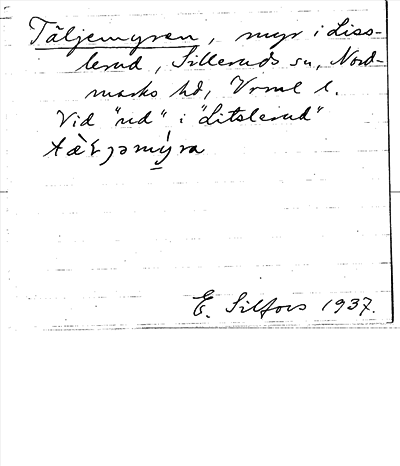 Täljemyren, myr i Liss-
lerud, Silleruds sn, Nord-
marks hd, Vrml l.
Vid "rud" i "Litslerud"
tæ̀ɽjəmýra
E. Silfors 1937.